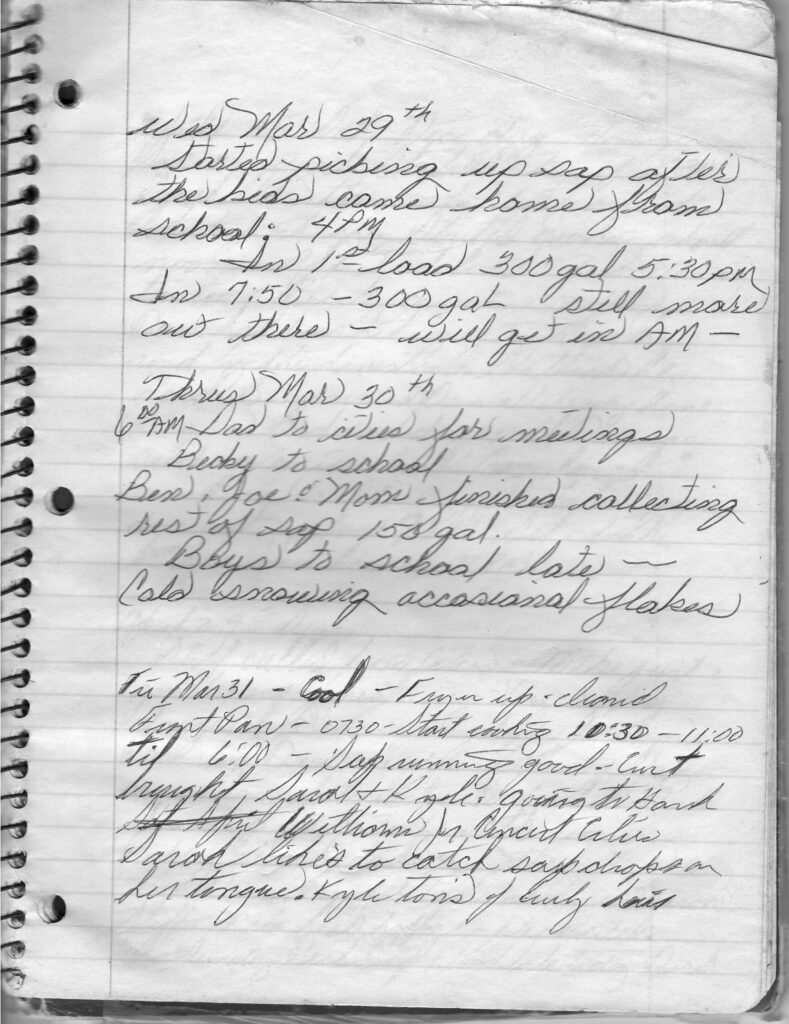 Wed Mar 29th
Started picking up sap after
the kids came home from
school: 4PM
In 1st load 300 gal 5:30pm
In 7:50 - 300 gal still more
out there - will get in AM -
Thrus Mar 30th
6 00 AM - Dad to cities for meetings
Becky to school
Ben, Joe & Mom finished collecting
rest of sap 150 gal.
Boys to school late -
Cold snowing occasional flakes
Fri Mar 31 - Cool - Frozen up - cleaned
Front Pan - 0730 - Start cooking 10:30 - 11:00
til 6:00 - Sap running good - Curt
brought Sarah + Kyle. going to Hank
Williams Jr Concert Cities
Sarah likes to catch sap drops on
her tongue. Kyle tons of curly hair